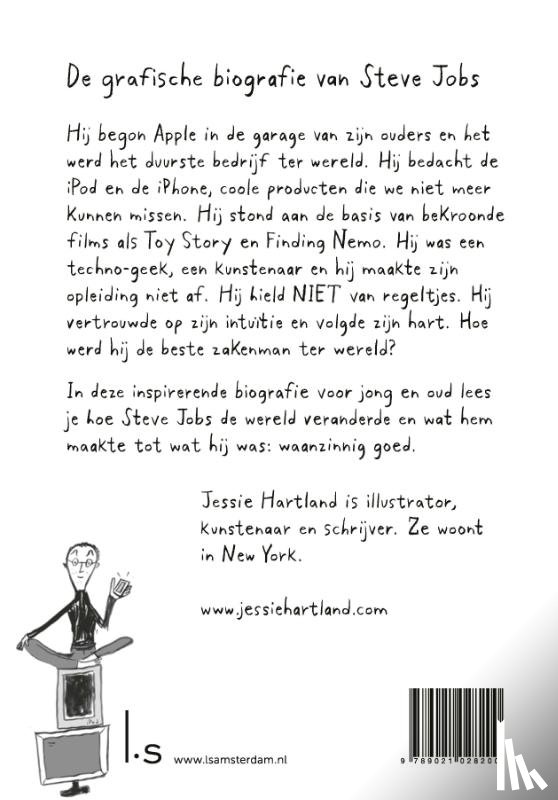 De grafische biografie van Steve Jobs
Hij begon Apple in de garage van zijn ouders en het
werd het duurste bedrijf ter wereld. Hij bedacht de
iPod en de iPhone, coole producten die we niet meer
kunnen missen. Hij stond aan de basis van bekroonde
films als Toy Story en Finding Nemo. Hij was een
techno-geek, een kunstenaar en hij maakte zijn
opleiding niet af. Hij hield NIET van regeltjes. Hij
vertrouwde op zijn intuïtie en volgde zijn hart. Hoe
werd hij de beste zakenman ter wereld?
In deze inspirerende biografie voor jong en oud lees
je hoe Steve Jobs de wereld veranderde en wat hem
maakte tot wat hij was: waanzinnig goed.
Jessie Hartland is illustrator,
kunstenaar en schrijver. Ze woont
in New York.
www.jessiehartland.com
l.s
www.lsamsterdam.nl
9 789021 02820